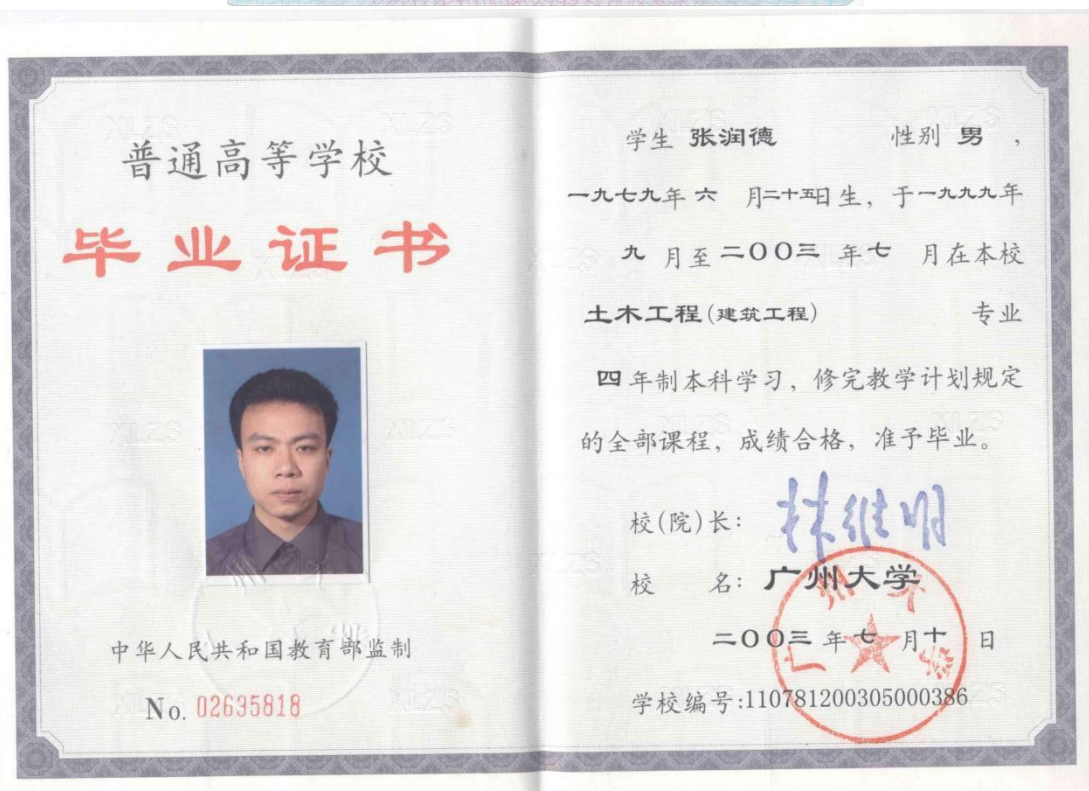 普通高等学校
毕业证书
中华人民共和国教育部监制
No. 02635818
学生 张润德 性别 男 ，
一九七九年 六 月二十五日生，于一九九九年
九 月至 二〇〇三 年 七 月在本校
土木工程(建筑工程) 专业
四年制本科学习，修完教学计划规定
的全部课程，成绩合格，准予毕业。
校(院)长： 林维明
校 名：广州大学
二〇〇三 年 七 月 十 日
学校编号:110781200305000386